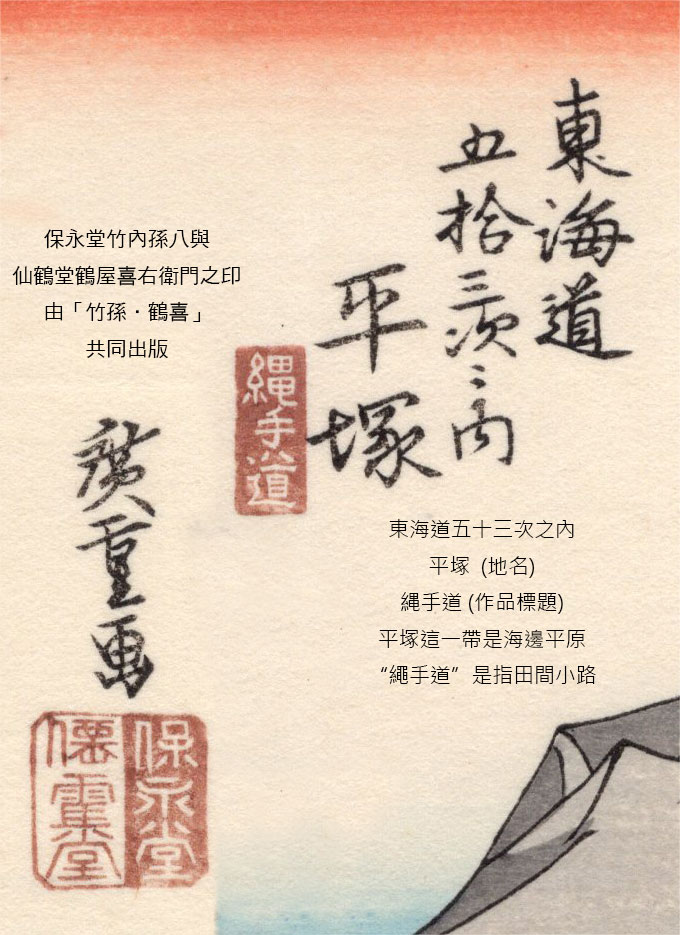 東海道
五拾三次之内
平塚
縄手道
保永堂竹內孫八與
仙鶴堂鶴屋喜右衛門之印
由「竹孫・鶴喜」
共同出版
廣重画
保永堂
僊寉堂
東海道五十三次之內
平塚 (地名)
縄手道 (作品標題)
平塚這一帶是海邊平原
“繩手道”是指田間小路